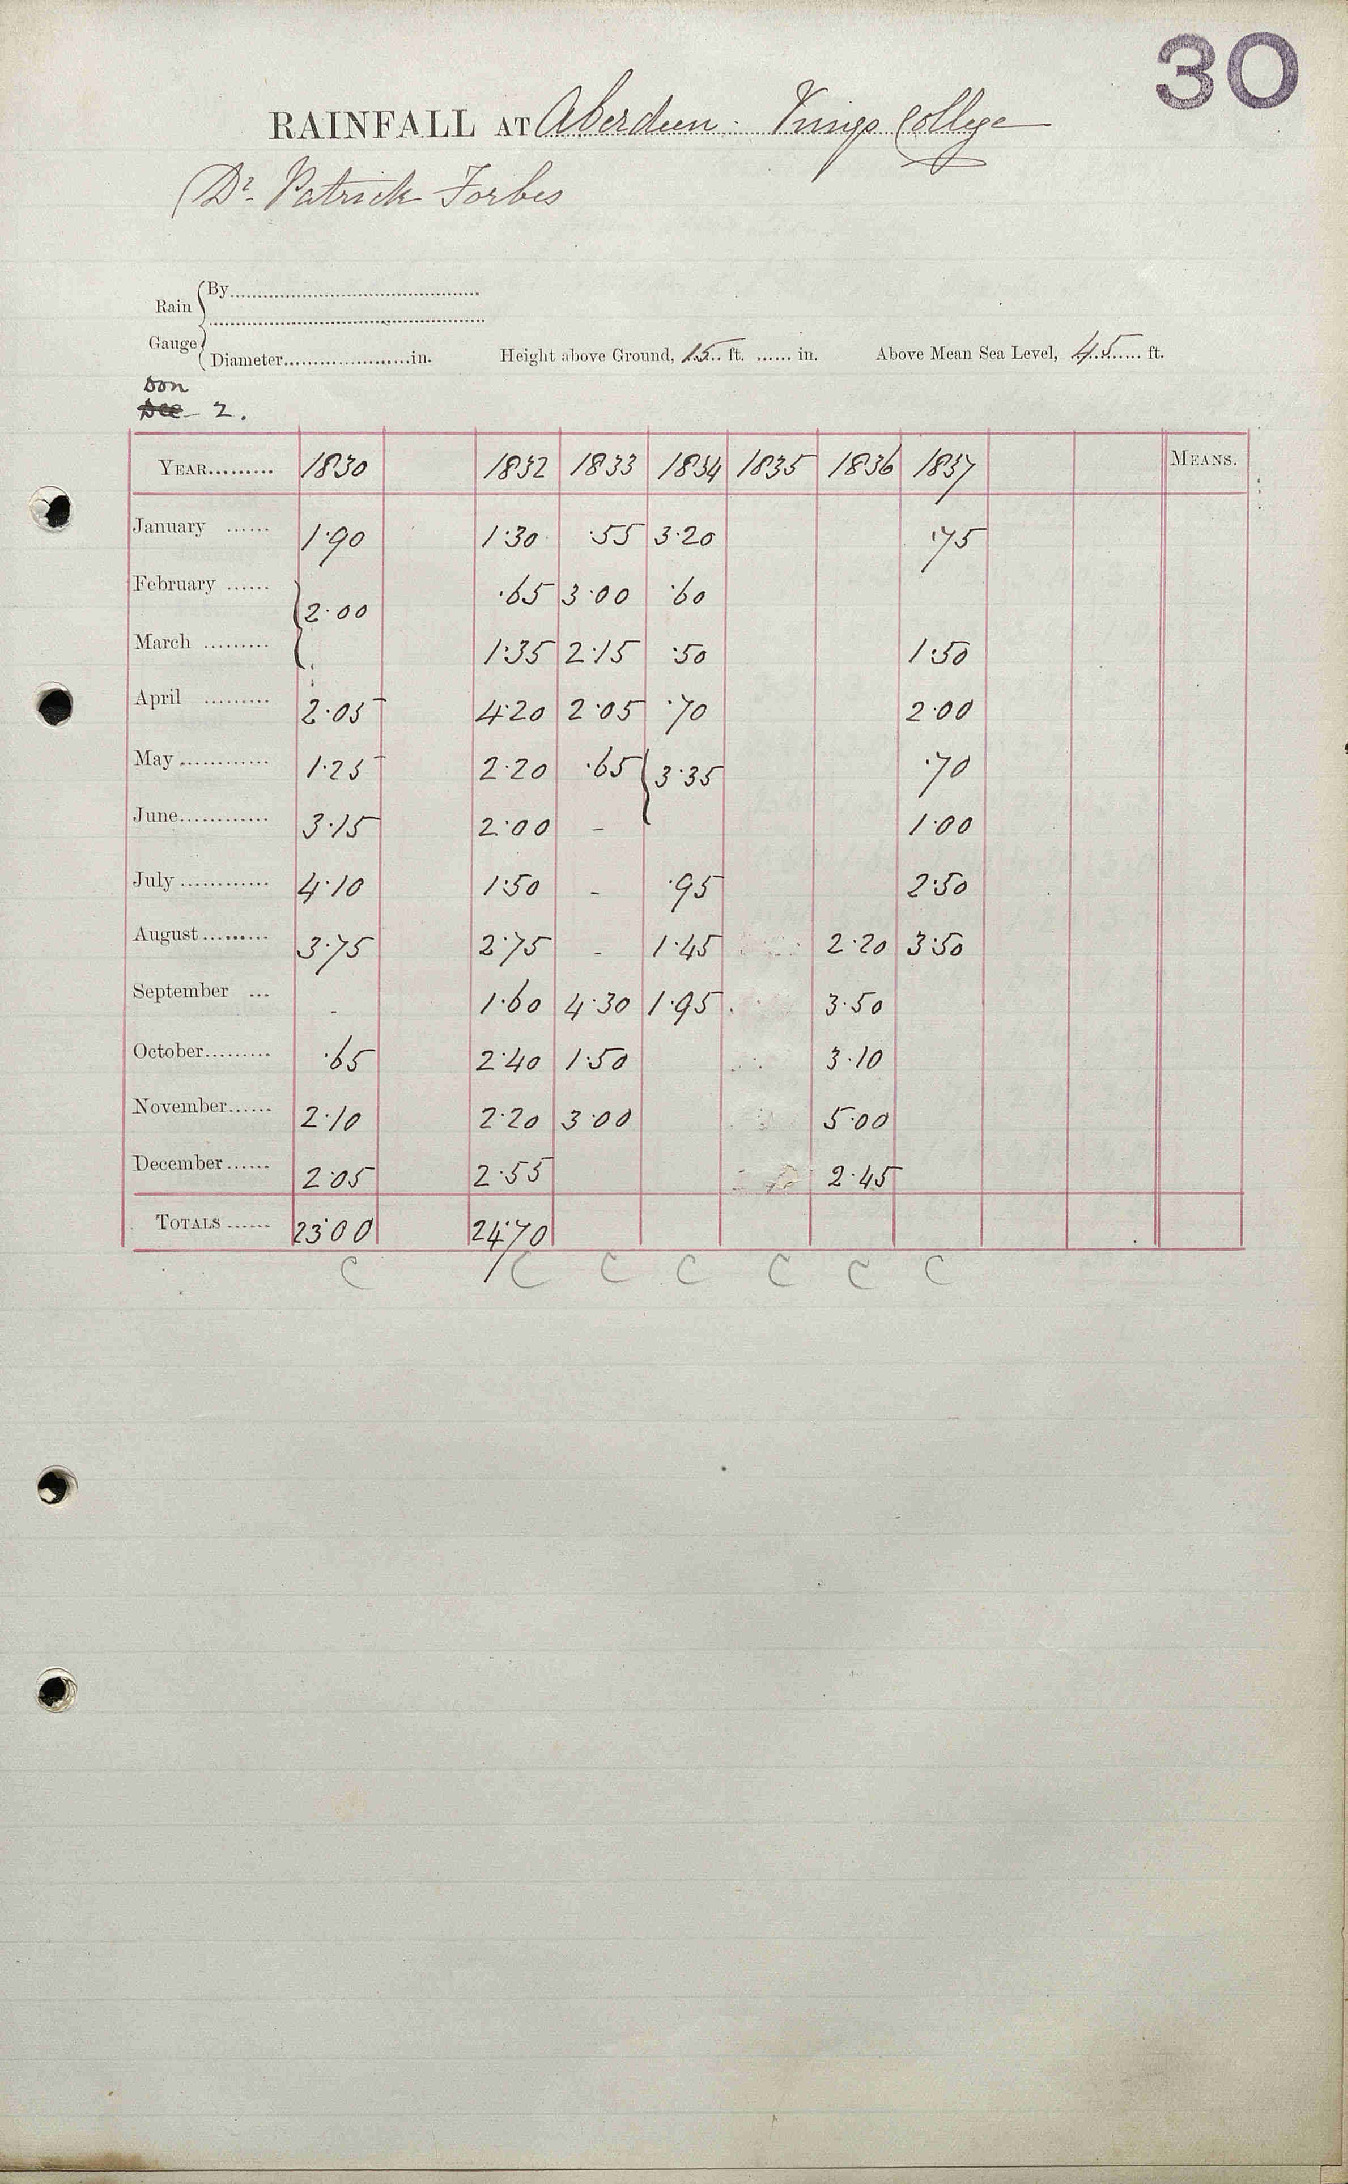 30
RAINFALL AT Aberdeen. Kings College
Dr. Patrick Forbes
Rain Gauge { By
Diameter in. Height above Ground, 15 ft. in. Above Mean Sea Level, 45 ft.
Don
Dee - 2.
YEAR 1830 1832 1833 1834 1835 1836 1837 MEANS.
January 1·90 1·30 ·55 3·20 ·75
February } 2·00 ·65 3·00 ·60
March 1·35 2·15 ·50 1·50
April 2·05 4·20 2·05 ·70 2·00
May 1·25 2·20 ·65 { 3·35 ·70
June 3·15 2·00 - 1·00
July 4·10 1·50 - ·95 2·50
August 3·75 2·75 - 1·45 2·20 3·50
September - 1·60 4·30 1·95 3·50
October ·65 2·40 1·50 3·10
November 2·10 2·20 3·00 5·00
December 2·05 2·55 2·45
TOTALS 23·00 24·70
C C C C C C C